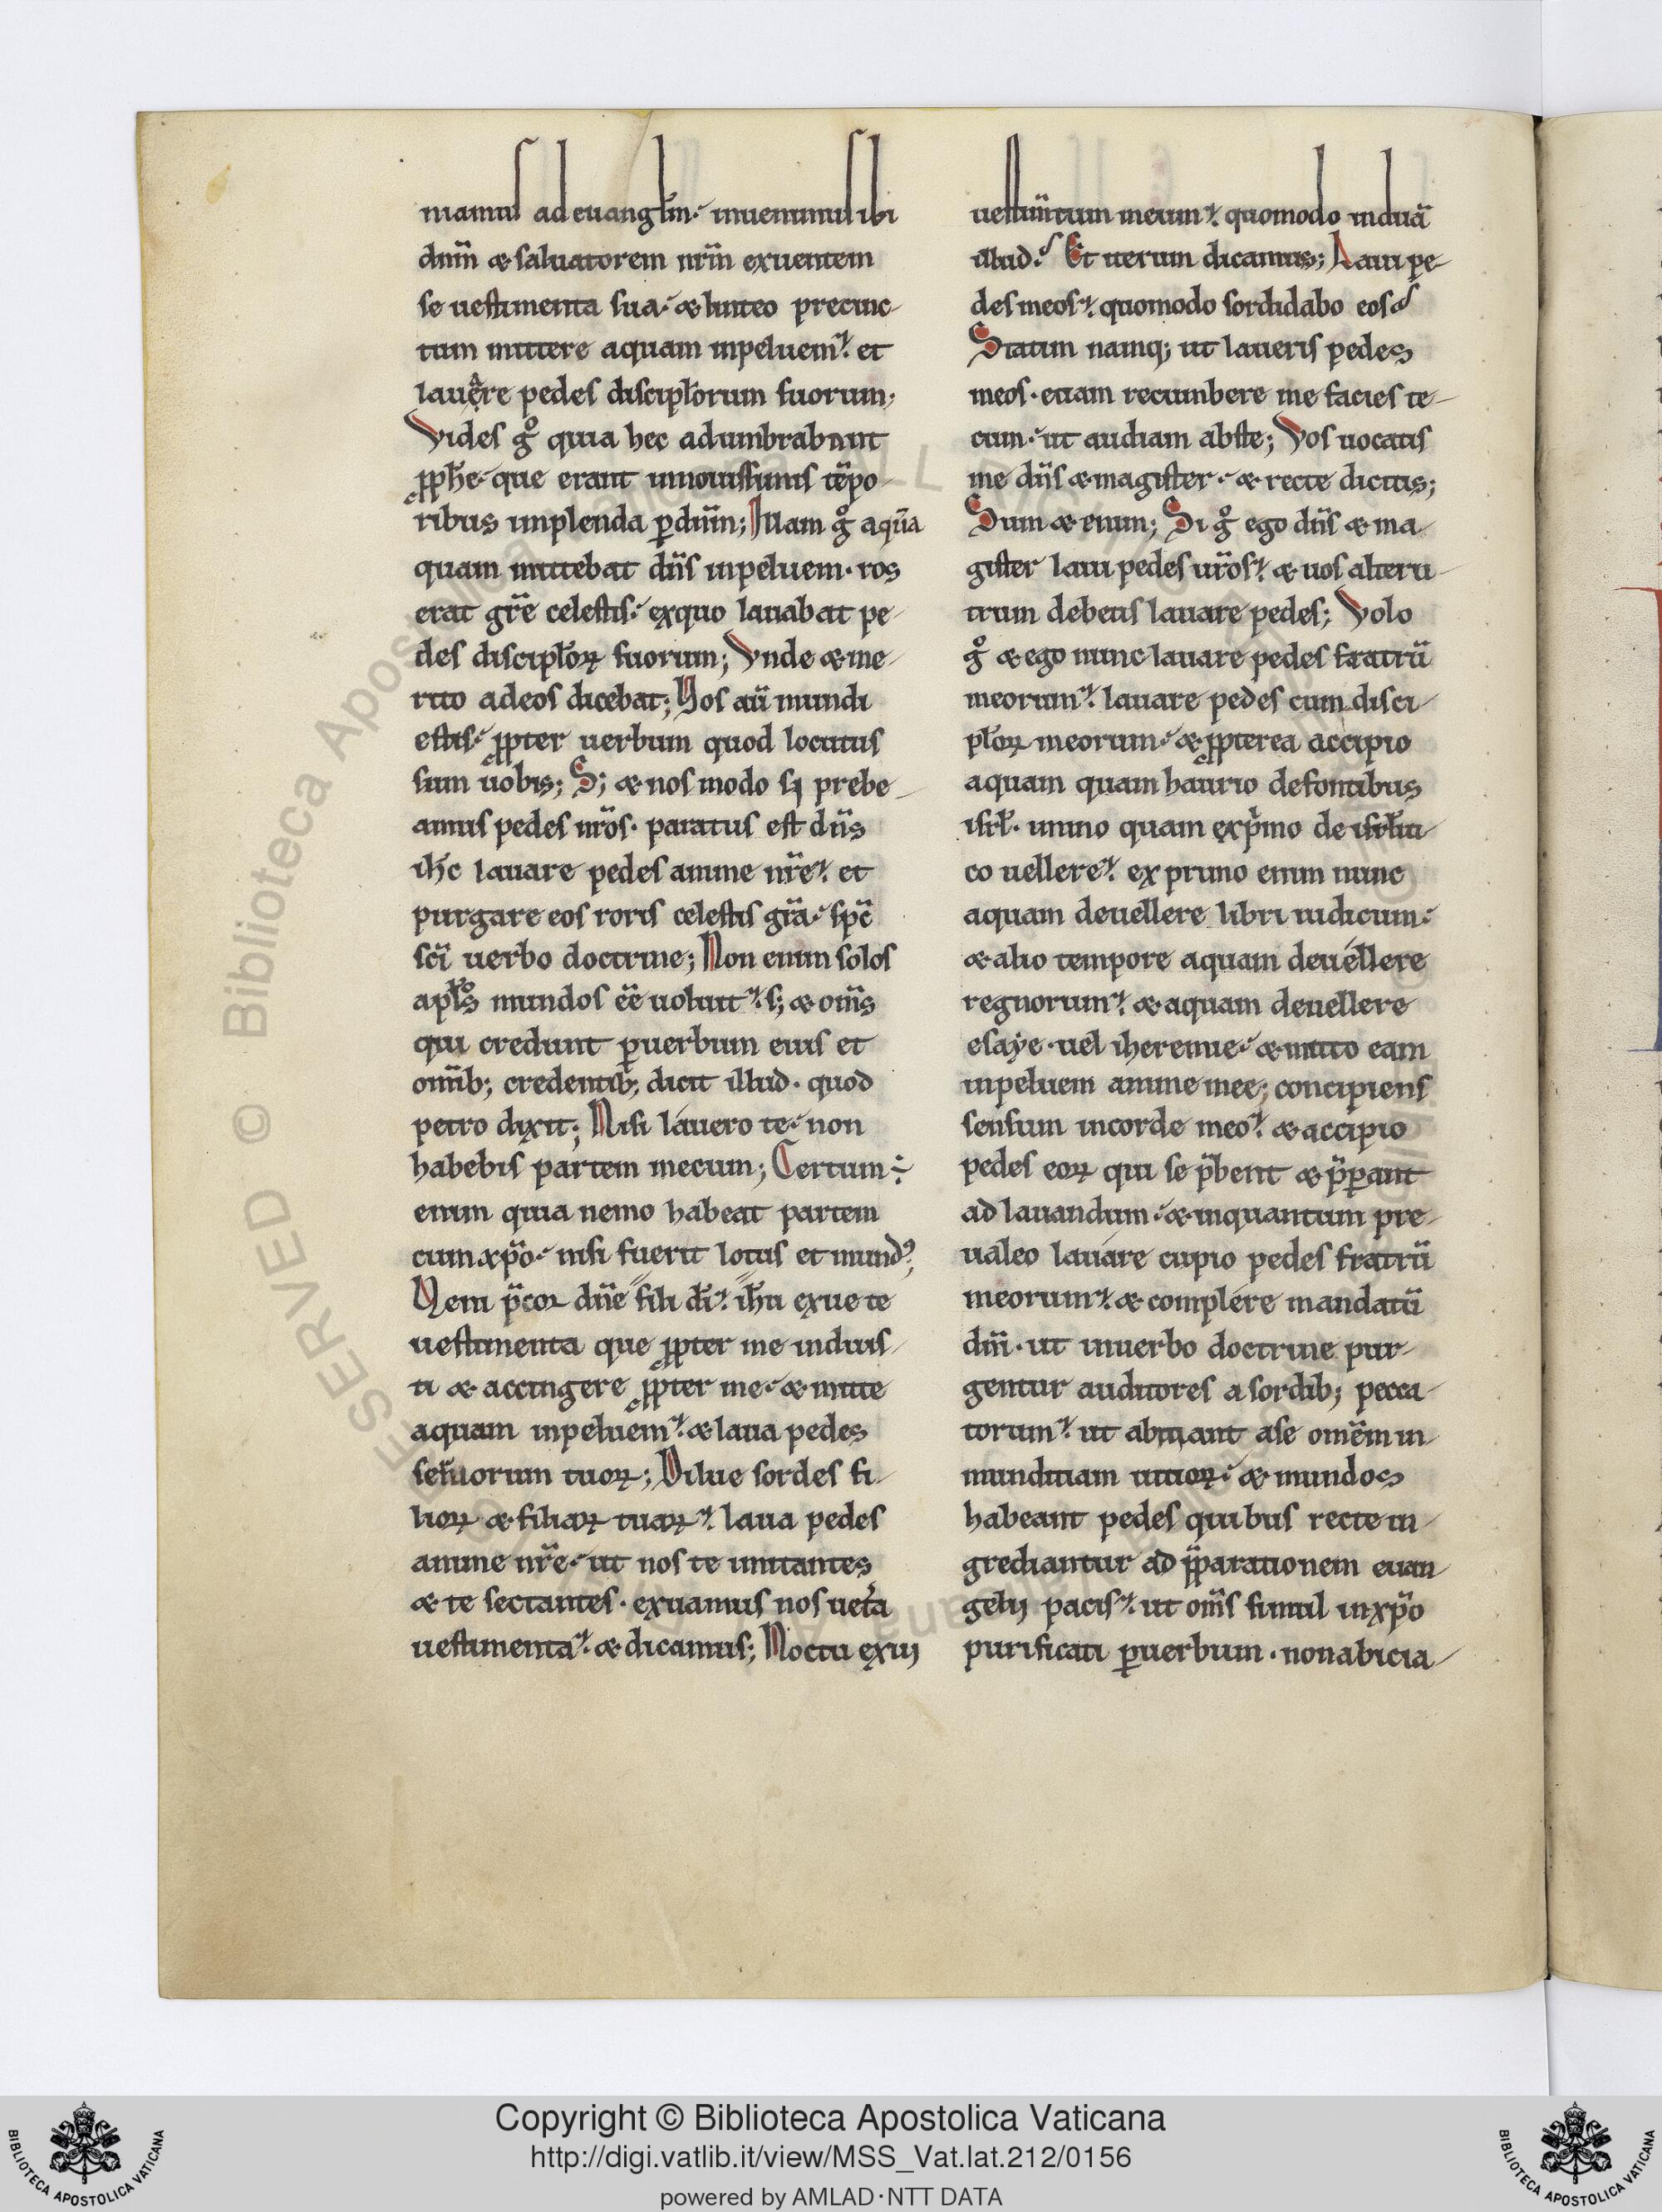 niamus ad euangl̄m. inuenimus ibi
dnm̄ & saluatorem nrm̄ exuentem
se uestimenta sua. & linteo precinc-
tum mittere aquam inpeluem. et
lauare pedes discipl̄orum suorum;
Vides gͦ quia hec adumbrabant
ꝓph̄e. que erant innouissimis tēpo-
ribus implenda ꝑ dnm̄; Illam gͦ aquā
quam mittebat dn̄s inpeluem. ros
erat gr̄e celestis. exquo lauabat pe-
des discipl̄oꝝ suorum; Vnde & me-
rito adeos dicebat; Uos aū mundi
estis. ꝓpter uerbum quod locutus
sum uobis; S; & nos modo si prebe-
amus pedes nr̄os. paratus est dn̄s
ih̄c lauare pedes anime nr̄e. et
purgare eos roris celestis gr̄a. sp̄c
sc̄i uerbo doctrine; Non enim solos
apl̄os mundos eē uoluit. s; & om̄s
qui credunt ꝑ uerbum eius et
omib; credentib; dicit illud. quod
petro dixit; Nisi lauero te. non
habebis partem mecum; Certum ÷
enim quia nemo habeat partem
cum xp̄o. nisi fuerit lotus et mundꝰ;
Veni p̄cor dn̄e fili di̅. ih̄u exue te
uestimenta que ꝓpter me induis-
ti & accingere ꝓpter me. & mitte
aquam inpeluem. & laua pedes
seruorum tuoꝝ; Dilue sordes fi-
lioꝝ & filiaꝝ tuaꝝ. laua pedes
anime nr̄e. ut nos te imitantes
& te sectantes. exuamus nos uet̄a
uestimenta. & dicamus; Noctu exui
uestimentum meum. quomodo induā
illud. Et iterum dicamus; Laui pe-
des meos. quomodo sordidabo eos
Statim namq; ut laueris pedes
meos. etiam recumbere me facies te-
cum. ut audiam abste; Vos uocatis
me dn̄s & magister. & recte dicitis;
Sum & enim; Si gͦ ego dn̄s & ma-
gister laui pedes ur̄os. & uos alteru-
trum debetis lauare pedes; Volo
gͦ & ego nunc lauare pedes fratrū
meorum. lauare pedes cum disci-
pl̄oꝝ meorum. & ꝓpterea accipio
aquam quam haurio defontibus
isrl̄. immo quam exp̄mo de isrl̄iti-
co uellere. ex primo enim nunc
aquam deuellere libri iudicum.
& alio tempore aquam deuellere
regnorum. & aquam deuellere
esaye. uel iheremie. & mitto eam
inpeluem anime mee; concipiens
sensum incorde meo. & accipio
pedes eoꝝ qui se p̄bent & p̄ꝑant
ad lauandum. & inquantum pre-
ualeo lauare cupio pedes fratrū
meorum. & complere mandatū
dn̄i. ut inuerbo doctrine pur-
gentur auditores a sordib; pecca-
torum. ut abiciant ase omēm in-
munditiam uitioꝝ. & mundos
habeant pedes quibus recte in-
grediantur ad p̄parationem euan-
gelij pacis. ut om̄s simul inxp̄o
purificati ꝑ uerbum. non abicia-
Copyright © Biblioteca Apostolica Vaticana
http://digi.vatlib.it/view/MSS_Vat.lat.212/0156
powered by AMLAD·NTT DATA
BIBLIOTECA APOSTOLICA VATICANA
BIBLIOTECA APOSTOLICA VATICANA